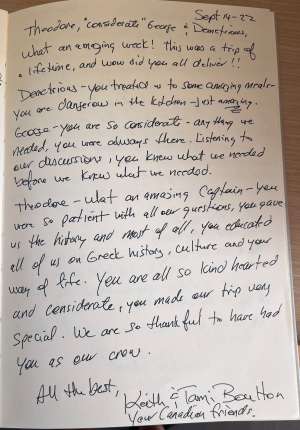 Sept 14-22
Theodore, "considerate" George & Demetrious,
What an amazing week! This was a trip of
a lifetime, and wow did you all deliver!!
Demetrious - you treated us to some amazing meals -
you are dangerous in the kitchen - just amazing.
George - you are so considerate - anything we
needed, you were always there. Listening to
our discussions, you knew what we needed
before we knew what we needed.
Theodore - what an amazing Captain - you
were so patient with all our questions, you gave
us the history and most of all, you educated
all of us on Greek history, culture and your
way of life. You are all so kind hearted
and considerate, you made our trip very
special. We are so thankful to have had
you as our crew.
All the best,
Keith & Tami
Your Canadian friends.